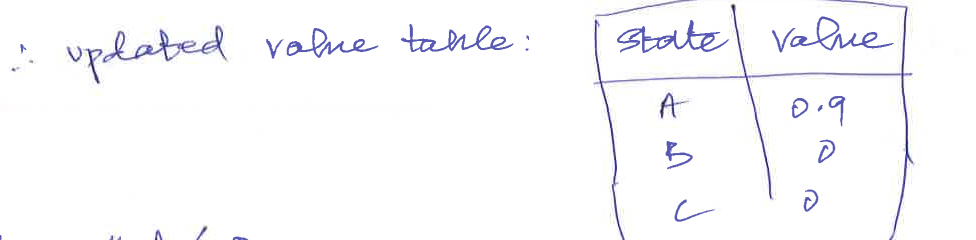 ∴ updated value table:
state value
A 0.9
B 0
C 0